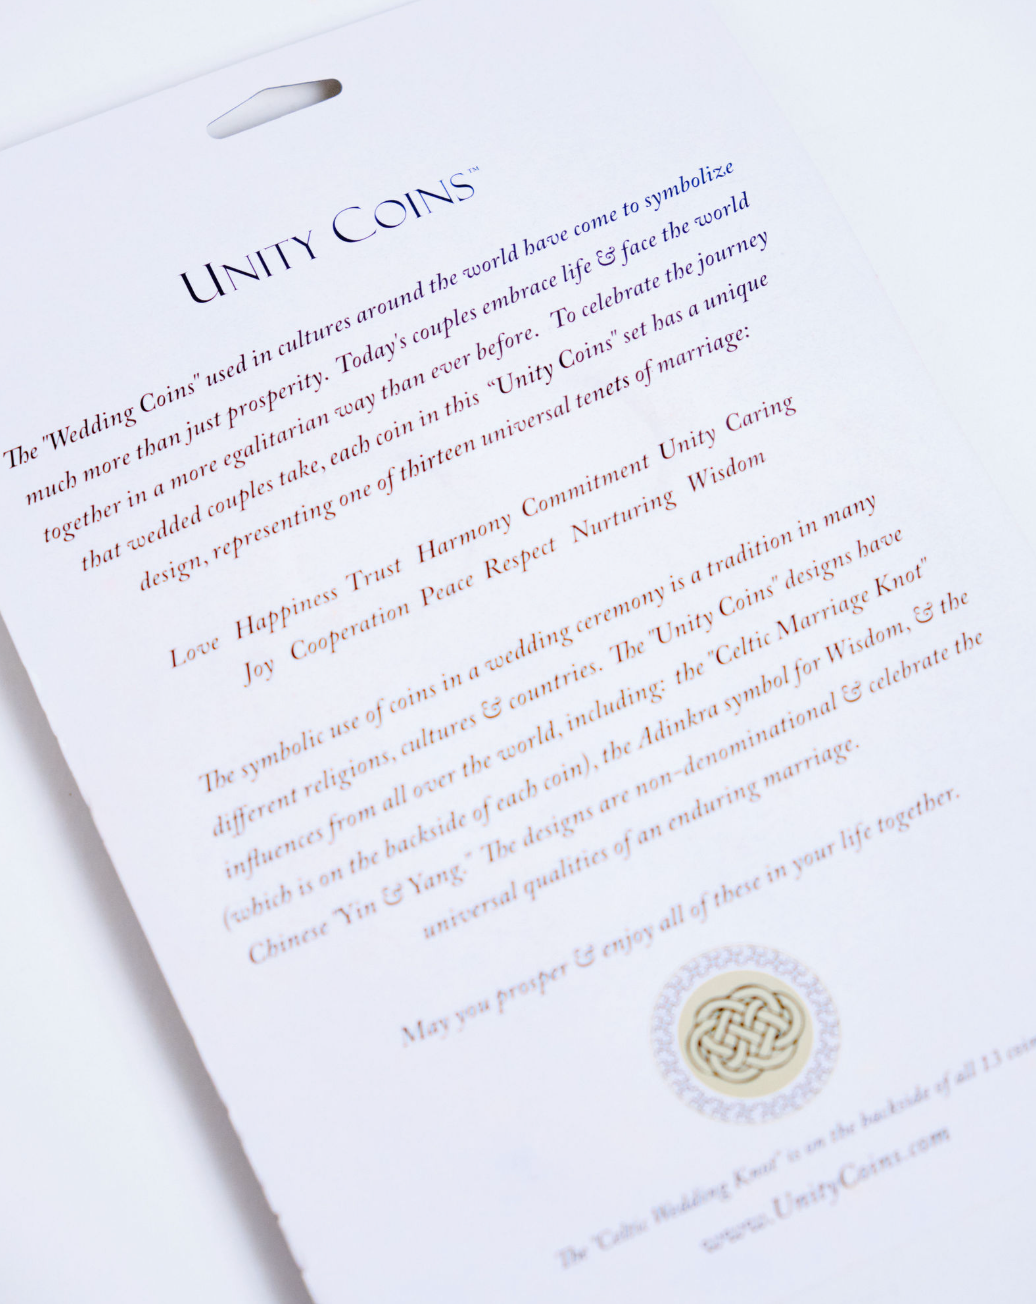 UNITY COINS™
The "Wedding Coins" used in cultures around the world have come to symbolize
much more than just prosperity. Today's couples embrace life & face the world
together in a more egalitarian way than ever before. To celebrate the journey
that wedded couples take, each coin in this "Unity Coins" set has a unique
design, representing one of thirteen universal tenets of marriage:
Love Happiness Trust Harmony Commitment Unity Caring
Joy Cooperation Peace Respect Nurturing Wisdom
The symbolic use of coins in a wedding ceremony is a tradition in many
different religions, cultures & countries. The "Unity Coins" designs have
influences from all over the world, including: the "Celtic Marriage Knot"
(which is on the backside of each coin), the Adinkra symbol for Wisdom, & the
Chinese "Yin & Yang." The designs are non-denominational & celebrate the
universal qualities of an enduring marriage.
May you prosper & enjoy all of these in your life together.
The "Celtic Wedding Knot" is on the backside of all 13 coin
www.UnityCoins.com